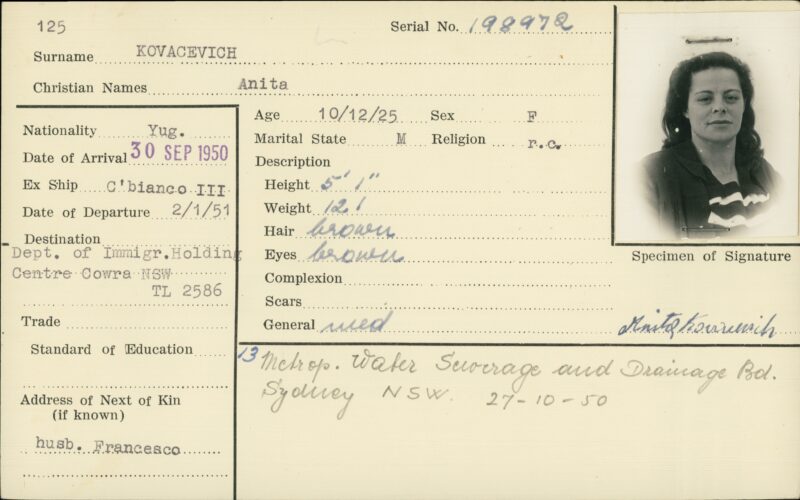 125
Serial No. 198972
Surname KOVACEVICH
Christian Names Anita
Nationality Yug.
Date of Arrival 30 SEP 1950
Ex Ship C'bianco III
Date of Departure 2/1/51
Destination
Dept. of Immigr.Holding
Centre Cowra NSW
TL 2586
Trade
Standard of Education
Address of Next of Kin
(if known)
husb. Francesco
Age 10/12/25 Sex F
Marital State M Religion r.c.
Description
Height 5' 1"
Weight 12 1
Hair brown
Eyes brown
Complexion
Scars
General med
Specimen of Signature
Anita Kovacevich
13 Metrop. Water Sewerage and Drainage Bd.
Sydney NSW. 27-10-50